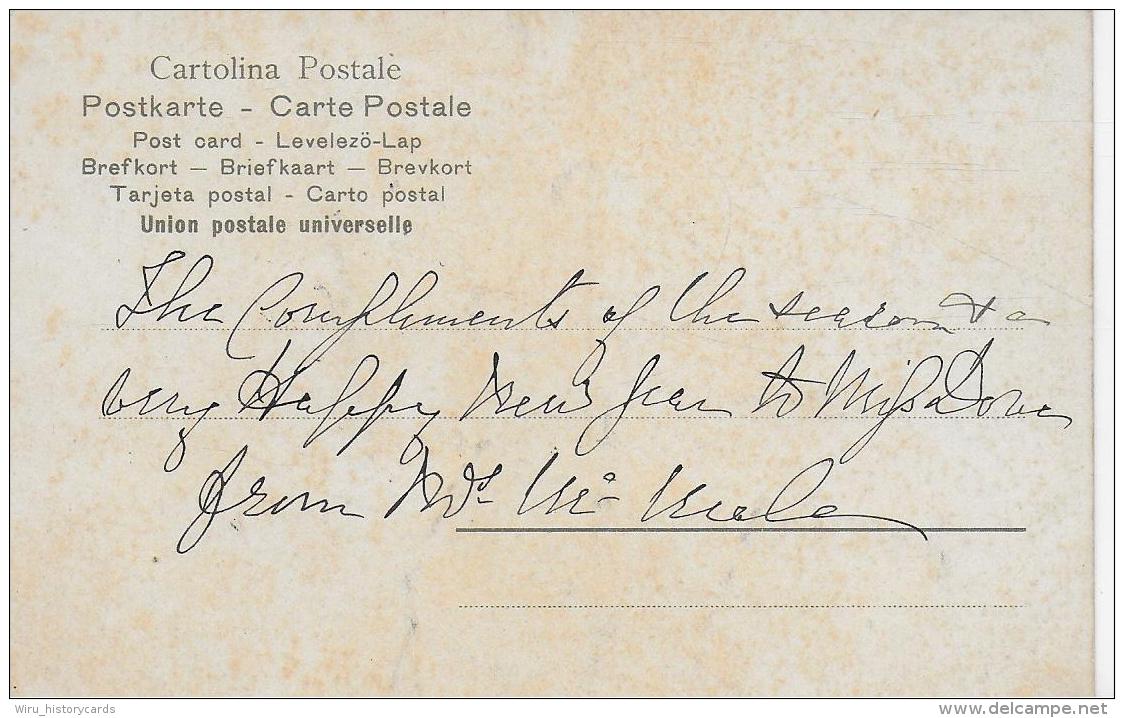 Cartolina Postale
Postkarte - Carte Postale
Post card - Levelezö-Lap
Brefkort — Briefkaart — Brevkort
Tarjeta postal - Carto postal
Union postale universelle
The Compliments of the season & a
very Happy New Year to Miss Dover
from
Wiru_historycards
www.delcampe.net